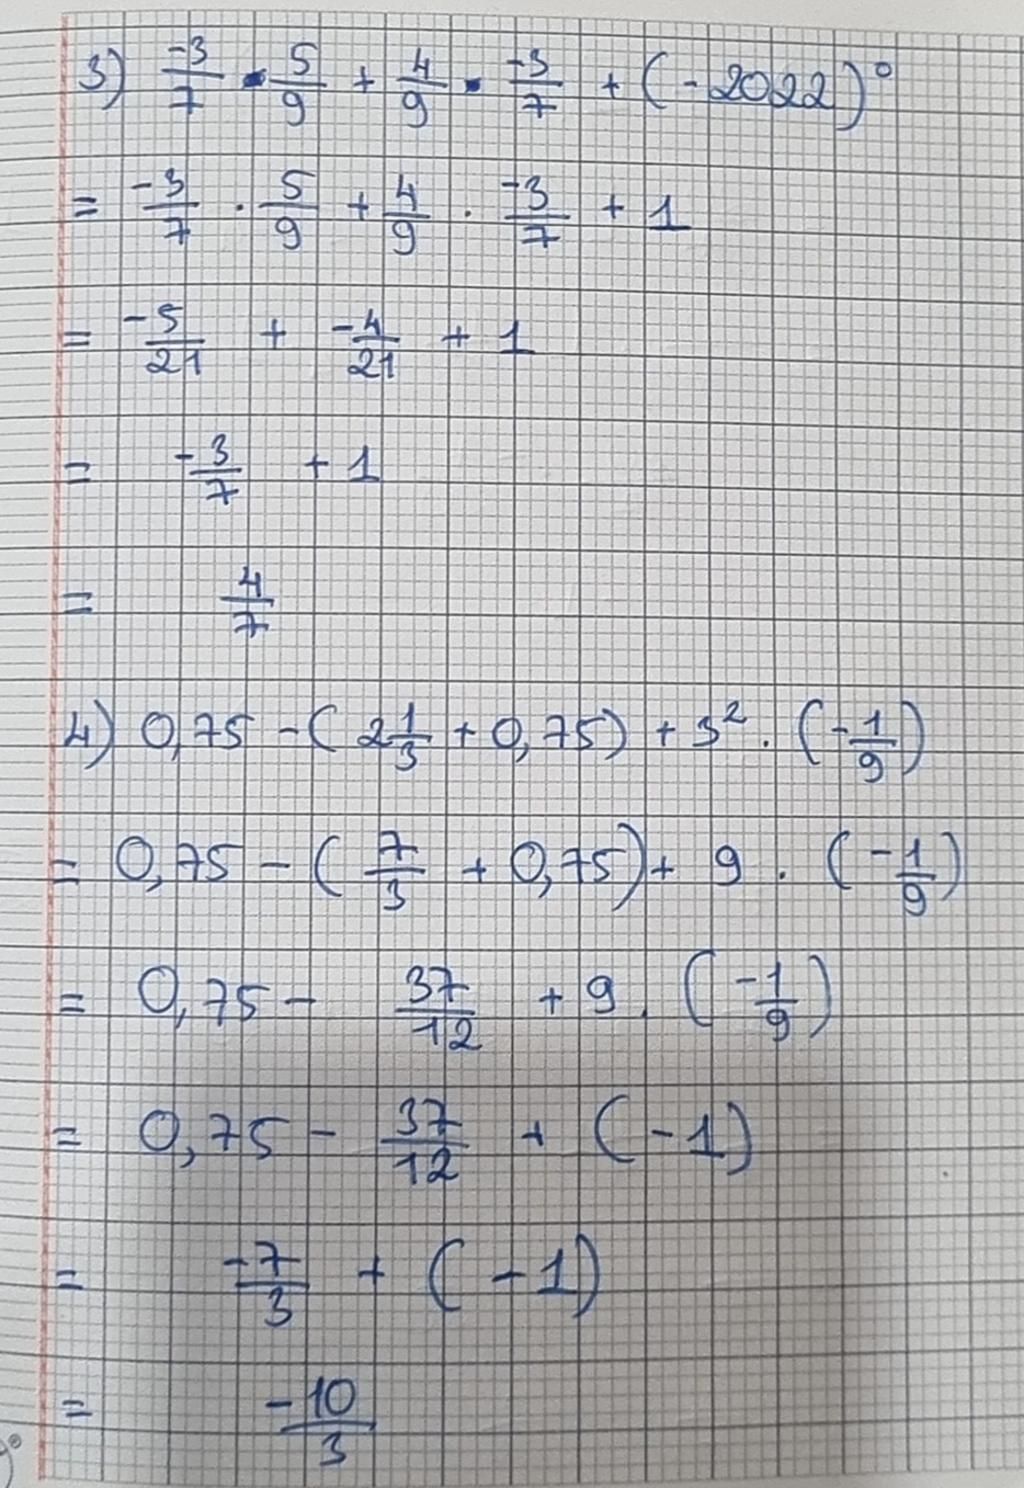 3) -3/7 . 5/9 + 4/9 . -3/7 + (-2022)⁰
= -3/7 . 5/9 + 4/9 . -3/7 + 1
= -5/21 + -4/21 + 1
= -3/7 + 1
= 4/7
4) 0,75 - (2 1/3 + 0,75) + 3² . (-1/9)
= 0,75 - (7/3 + 0,75) + 9 . (-1/9)
= 0,75 - 37/12 + 9 . (-1/9)
= 0,75 - 37/12 + (-1)
= -7/3 + (-1)
= -10/3